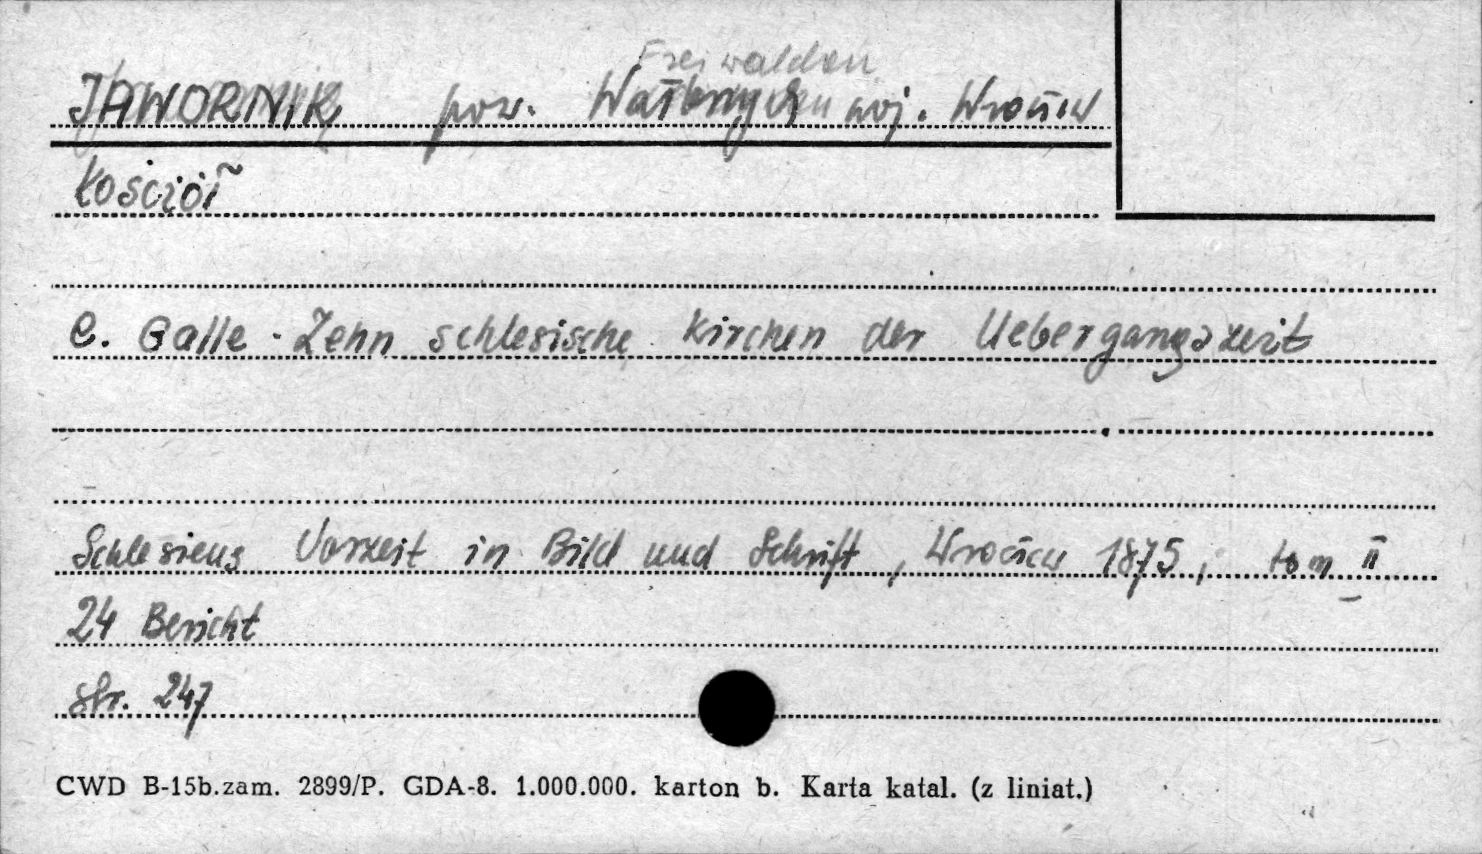 Freiwalden
JAWORNIK pow. Wałbrzych woj. Wrocław
Kościół
E. Galle - Zehn schlesische Kirchen der Uebergangszeit
Schlesiens Vorzeit in Bild und Schrift, Wrocław 1875, tom II
24 Bericht
str. 247
CWD B-15b.zam. 2899/P. GDA-8. 1.000.000. karton b. Karta katal. (z liniat.)